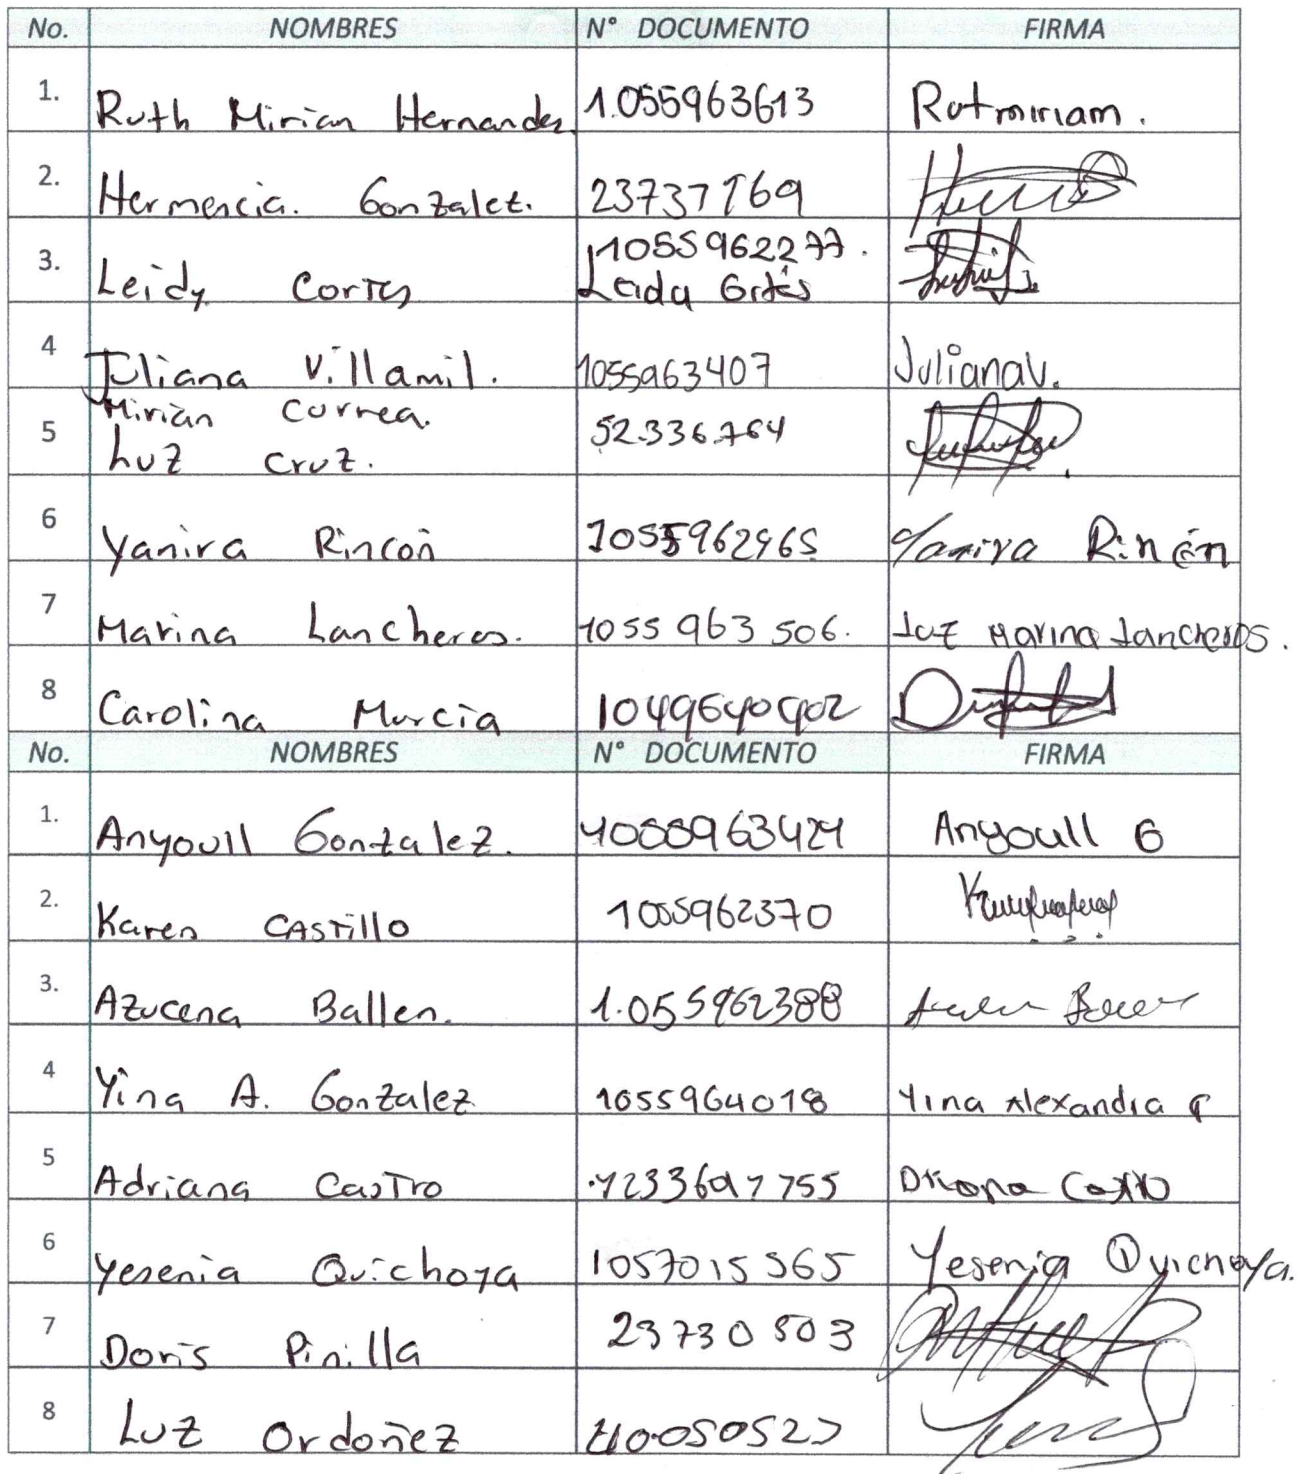 No. NOMBRES N° DOCUMENTO FIRMA
1. Ruth Mirian Hernandez 1.055963613 Rutmiriam.
2. Hermencia. Gonzalez. 23737169
3. Leidy Cortes 1055962277. Leida Cortés
4 Juliana Villamil. 1055963407 JulianaV.
5 Mirian Correa. Luz Cruz. 52.336.764
6 Yanira Rincon 1055962965 Yanira Rincón
7 Marina Lancheros. 1055 963 506. Luz Marina Lancheros.
8 Carolina Murcia 1049640902
No. NOMBRES N° DOCUMENTO FIRMA
1. Anyoull Gonzalez. 1055963424 Anyoull G
2. Karen Castillo 1055962370
3. Azucena Ballen. 1.055962388
4 Yina A. Gonzalez 1055964018 Yina Alexandra G
5 Adriana Castro 1233691755 Castro
6 Yesenia Quichoya 1057015565 Yesenia Quichoya.
7 Doris Pinilla 23730503
8 Luz Ordoñez